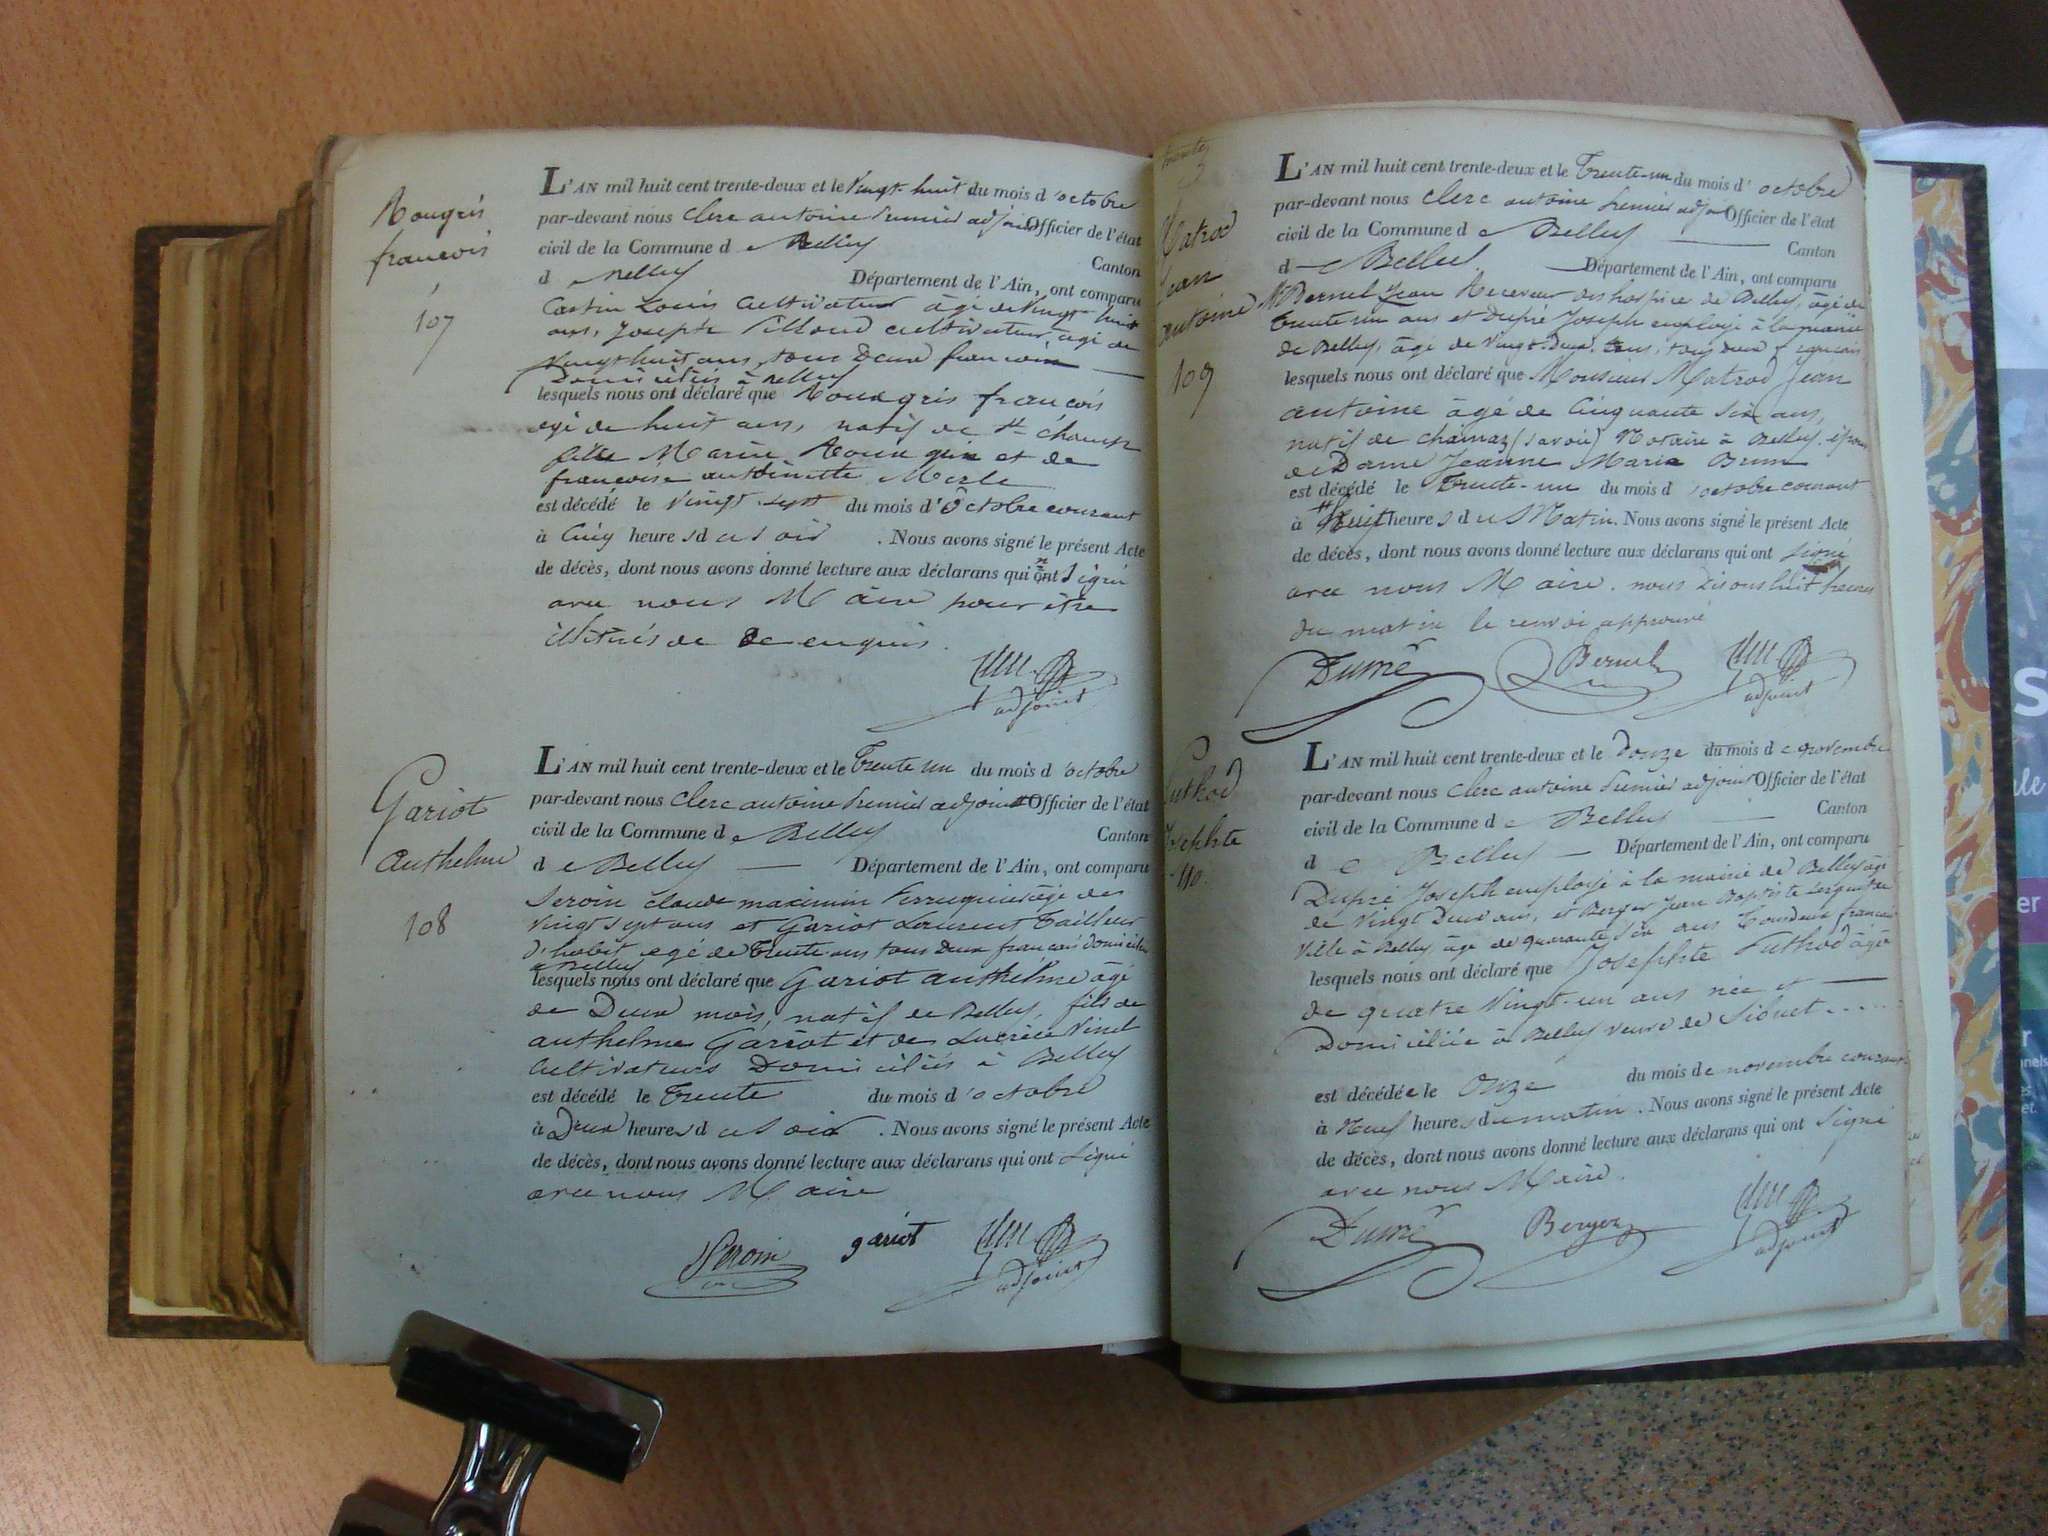 Rougris
françois
107
L'AN mil huit cent trente-deux et le Vingt-huit du mois d'octobre
par-devant nous Clerc antoine premier adjoint Officier de l'état
civil de la Commune de Belley
Canton
de Belley Département de l'Ain, ont comparu
Louis Cultivateur âgé de Vingt huit
ans, Joseph Cultivateur, âgé de
Vingt huit ans, tous Deux français
Domiciliés à Belley
lesquels nous ont déclaré que françois
âgé de huit ans, natif de St champ
Marie et de
françoise antoinette Merle
est décédé le Vingt-sept du mois d'octobre courant
à Cinq heures du soir . Nous avons signé le présent Acte
de décès, dont nous avons donné lecture aux déclarans qui n'ont signé
avec nous Maire pour être
illitérés de ce enquis.
adjoint
Gariot
Anthelme
108
L'AN mil huit cent trente-deux et le Trente-un du mois d'octobre
par-devant nous Clerc antoine premier adjoint Officier de l'état
civil de la Commune de Belley
Canton
de Belley — Département de l'Ain, ont comparu
Seroin Claude maximin Perruquier âgé de
Vingt sept ans et Gariot Laurent Tailleur
d'habit, agé de Trente ans tous Deux français domiciliés
à Belley
lesquels nous ont déclaré que Gariot anthelme âgé
de Deux mois, natif de Belley, fils de
anthelme Gariot et de Lucrèce
Cultivateurs Domiciliés à Belley
est décédé le Trente du mois d'octobre
à Deux heures du soir . Nous avons signé le présent Acte
de décès, dont nous avons donné lecture aux déclarans qui ont signé
avec nous Maire
Seroin gariot
adjoint
Matrod
Jean
antoine
109
L'AN mil huit cent trente-deux et le Trente-un du mois d'octobre
par-devant nous Clerc antoine premier adjoint Officier de l'état
civil de la Commune de Belley —
Canton
de Belley — Département de l'Ain, ont comparu
Mr Bernel Jean Receveur des hospice de Belley, âgé de
trente un ans et Dupré Joseph employé à la mairie
de Belley, âgé de Vingt-Deux ans, tous deux français
lesquels nous ont déclaré que Monsieur Matrod Jean
antoine âgé de Cinquante Six ans,
natif de chanaz (savoie) Notaire à Belley, époux
de Dame Jeanne Marie Brun
est décédé le Trente-un du mois d'octobre courant
à Huit heures du Matin. Nous avons signé le présent Acte
de décès, dont nous avons donné lecture aux déclarans qui ont signé
avec nous Maire. nous Disons huit heures
du matin le renvoi approuvé
Dupré Bernel
adjoint
Puthod
Josephte
110.
L'AN mil huit cent trente-deux et le Douze du mois de novembre
par-devant nous Clerc antoine premier adjoint Officier de l'état
civil de la Commune de Belley —
Canton
de Belley — Département de l'Ain, ont comparu
Dupré Joseph employé à la mairie de Belley âgé
de Vingt Deux ans, et Berger Jean Baptiste Sergent de
Ville à Belley âgé de quarante Six ans Tous deux français
lesquels nous ont déclaré que Josephte Puthod âgée
de quatre Vingt-un ans née et —
Domiciliée à Belley veuve de
est décédée le Onze du mois de novembre courant
à Neuf heures du matin. Nous avons signé le présent Acte
de décès, dont nous avons donné lecture aux déclarans qui ont signé
avec nous Maire.
Dupré Berger
adjoint